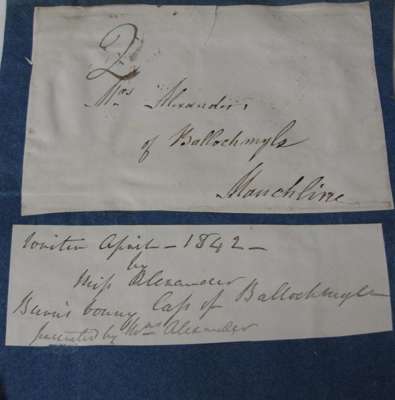 2
Mrs Alexander,
of Ballochmyle
Mauchline
Written April - 1842 -
by
Miss Alexander
Burns bonny Lass of Ballochmyle
presented by Mrs Alexander